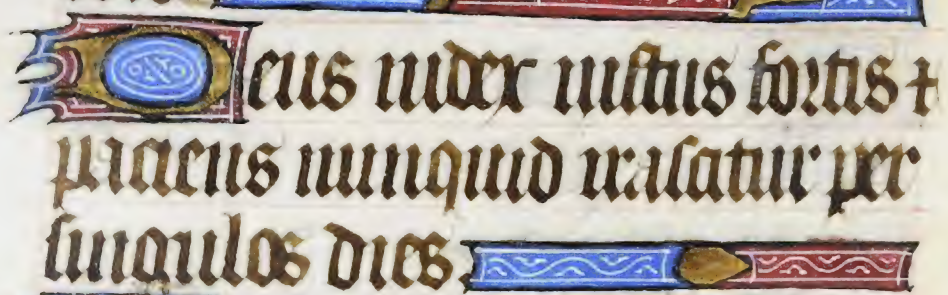 Deus iudex iustus fortis ⁊
paciens nunquid irascitur per
singulos dies.